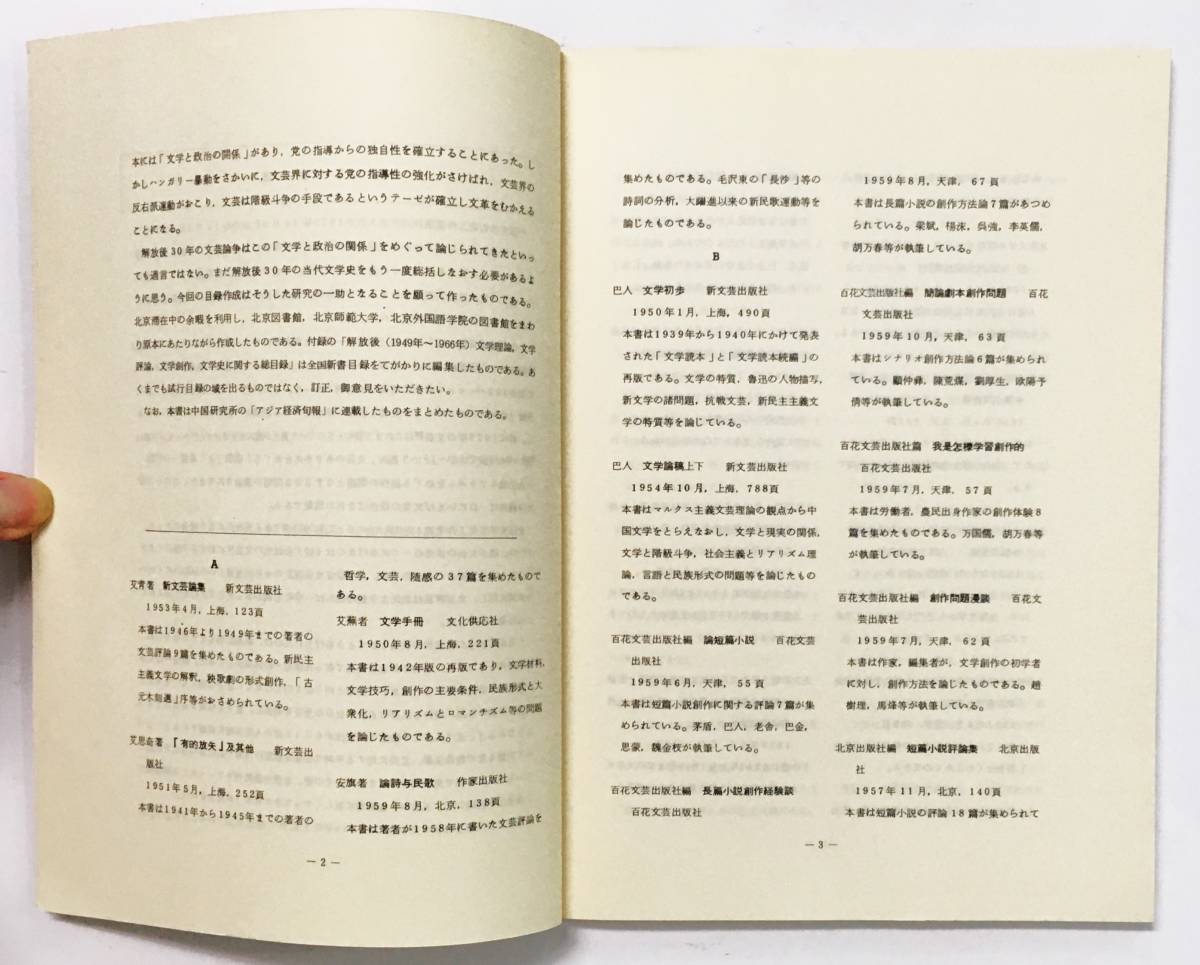 本には「文学と政治の関係」があり，党の指導からの独自性を確立することにあった。し
かしハンガリー暴動をさかいに，文芸界に対する党の指導性の強化がさけばれ，文芸界の
反右派運動がおこり，文芸は階級斗争の手段であるというテーゼが確立し文革をむかえる
ことになる。
解放後30年の文芸論争はこの「文学と政治の関係」をめぐって論じられてきたといっ
ても過言ではない。まだ解放後30年の当代文学史をもう一度総括しなおす必要があるよ
うに思う。今回の目録作成はそうした研究の一助となることを願って作ったものである。
北京滞在中の余暇を利用し，北京図書館，北京師範大学，北京外国語学院の図書館をまわ
り原本にあたりながら作成したものである。付録の「解放後（1949年～1966年）文学理論，文学
評論，文学創作，文学史に関する総目録」は全国新書目録をてがかりに編集したものである。あ
くまでも試行目録の域を出るものではなく，訂正，御意見をいただきたい。
なお，本書は中国研究所の「アジア経済旬報」に連載したものをまとめたものである。
A
艾青著 新文芸論集 新文芸出版社
1953年4月，上海，123頁
本書は1946年より1949年までの著者の
文芸評論9篇を集めたものである。新民主
主義文学の解釈，秧歌劇の形式創作，「古
元木刻選」序等がおさめられている。
艾思奇著 「有的放矢」及其他 新文芸出
版社
1951年5月，上海，252頁
本書は1941年から1945年までの著者の
哲学，文芸，随感の37篇を集めたもので
ある。
艾蕪著 文学手冊 文化供応社
1950年8月，上海，221頁
本書は1942年版の再版であり，文学材料，
文学技巧，創作の主要条件，民族形式と大
衆化，リアリズムとロマンチズム等の問題
を論じたものである。
安旗著 論詩与民歌 作家出版社
1959年8月，北京，138頁
本書は著者が1958年に書いた文芸評論を
— 2 —
集めたものである。毛沢東の「長沙」等の
詩詞の分析，大躍進以来の新民歌運動等を
論じたものである。
B
巴人 文学初歩 新文芸出版社
1950年1月，上海，490頁
本書は1939年から1940年にかけて発表
された「文学読本」と「文学読本続編」の
再版である。文学の特質，魯迅の人物描写，
新文学の諸問題，抗戦文芸，新民主主義文
学の特質等を論じている。
巴人 文学論稿上下 新文芸出版社
1954年10月，上海，788頁
本書はマルクス主義文芸理論の観点から中
国文学をとらえなおし，文学と現実の関係，
文学と階級斗争，社会主義とリアリズム理
論，言語と民族形式の問題等を論じたもの
である。
百花文芸出版社編 論短篇小説 百花文芸
出版社
1959年6月，天津，55頁
本書は短篇小説創作に関する評論7篇が集
められている。茅盾，巴人，老舎，巴金，
思蒙，魏金枝が執筆している。
百花文芸出版社編 長篇小説創作経験談
百花文芸出版社
1959年8月，天津，67頁
本書は長篇小説の創作方法論7篇があつめ
られている。梁斌，楊沫，呉強，李英儒，
胡万春等が執筆している。
百花文芸出版社編 簡論劇本創作問題 百花
文芸出版社
1959年10月，天津，63頁
本書はシナリオ創作方法論6篇が集められ
ている。顧仲彝，陳荒煤，劉厚生，欧陽予
倩等が執筆している。
百花文芸出版社篇 我是怎様学習創作的
百花文芸出版社
1959年7月，天津，57頁
本書は労働者，農民出身作家の創作体験8
篇を集めたものである。万国儒，胡万春等
が執筆している。
百花文芸出版社編 創作問題漫談 百花文
芸出版社
1959年7月，天津，62頁
本書は作家，編集者が，文学創作の初学者
に対し，創作方法を論じたものである。趙
樹理，馬烽等が執筆している。
北京出版社編 短篇小説評論集 北京出版
社
1957年11月，北京，140頁
本書は短篇小説の評論18篇が集められて
— 3 —